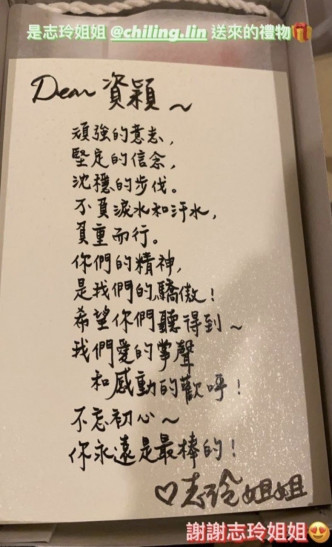 是志玲姐姐 @chiling.lin 送來的禮物🎁
Dear 資穎~
頑強的意志,
堅定的信念,
沈穩的步伐。
不負淚水和汗水,
負重而行。
你們的精神,
是我們的驕傲!
希望你們聽得到~
我們愛的掌聲
和感動的歡呼!
不忘初心~
你永遠是最棒的!
♡志玲姐姐
謝謝志玲姐姐😍